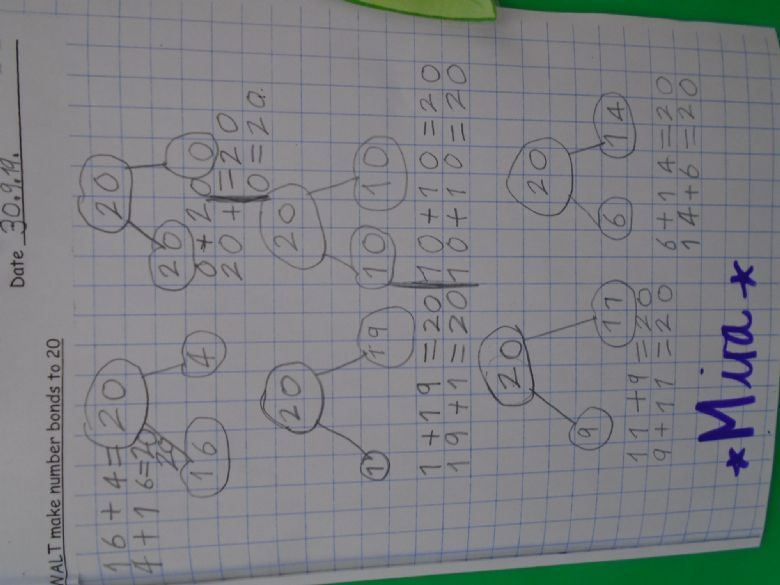 Date 30.9.19.
WALT make number bonds to 20
16+4=20
4+16=20
20
16 4
20
20 0
0+20=20
20+0=20.
20
1 19
1+19=20
19+1=20
20
10 10
10+10=20
10+10=20
20
9 11
11+9=20
9+11=20
20
6 14
6+14=20
14+6=20
*Mira*